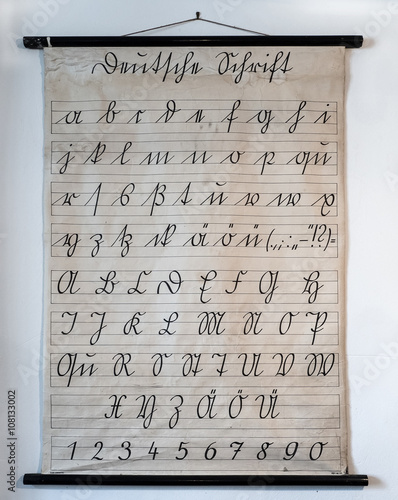 Deutsche Schrift
a b c d e f g h i
j k l m n o p qu
r ſ s ß t u v w x
y z tz ck ä ö ü (.,;:„–"!?)=
A B C D E F G H
I J K L M N O P
Qu R S St T U V W
X Y Z Ä Ö Ü
1 2 3 4 5 6 7 8 9 0
Adobe Stock | #108133002